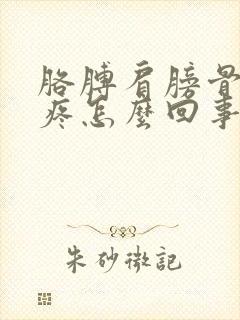 胳膊肩膀骨
疼怎麼回事
朱砂微記